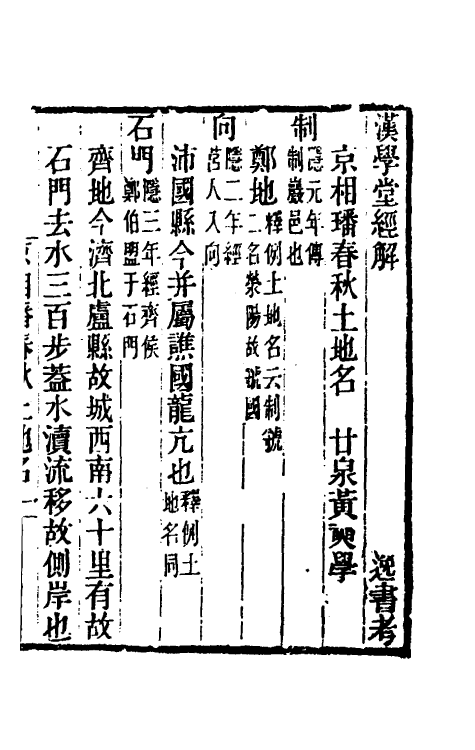 漢學堂經解　逸書考
京相璠春秋土地名　甘泉黃奭學
制隱元年傳
制巖邑也
鄭地釋例土地名云制虢
二名滎陽故虢國
向隱二年經
莒人入向
沛國縣今并屬譙國龍亢也釋例土
地名同
石門隱三年經齊侯
鄭伯盟于石門
齊地今濟北盧縣故城西南六十里有故
石門去水三百步蓋水瀆流移故側岸也
京相璠春秋土地名一